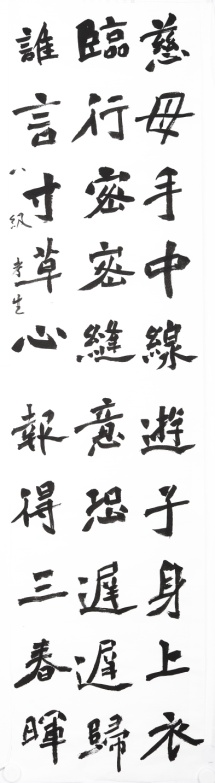 慈母手中線遊子身上衣
臨行密密縫意恐遲遲歸
誰言寸草心報得三春暉
八級 李生